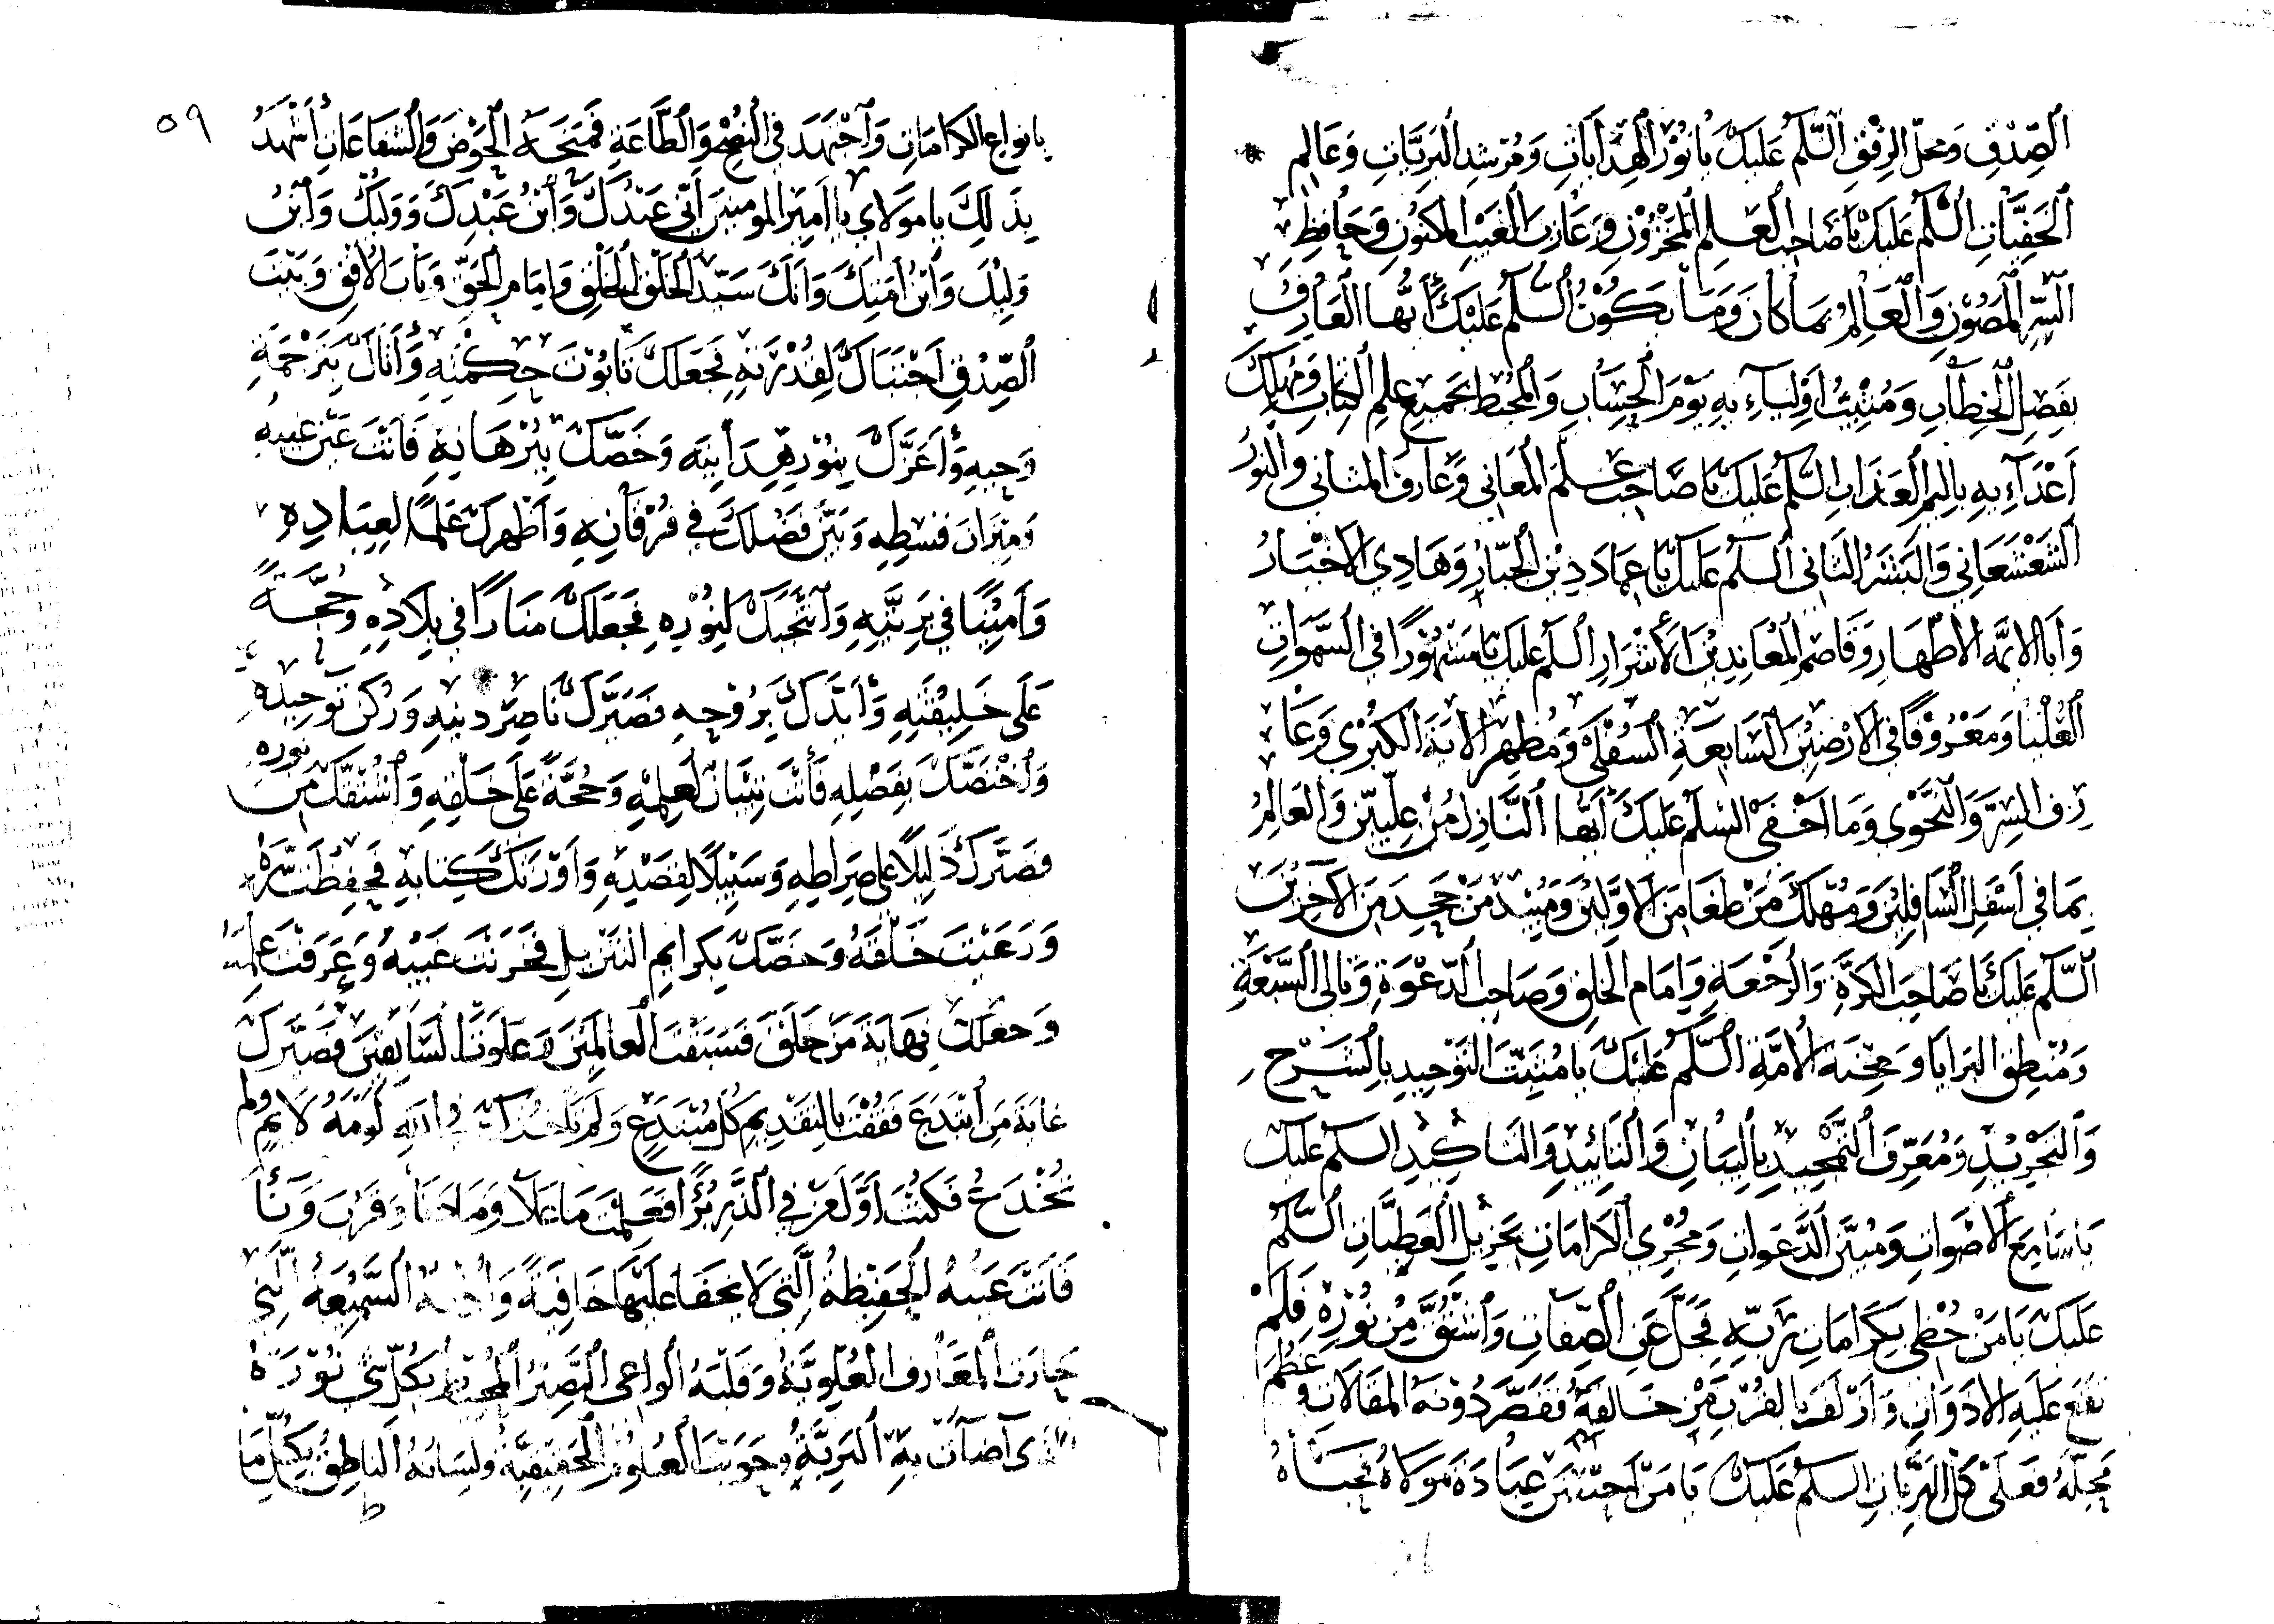 الصِّدْقِ وَمحلّ الرِفْقِ السَّلَمُ عَلَيكَ يا نُوْرَ الْهِدَايَاتِ وَمُرْشِدِ البَرِيَّاتِ وَعَالِمِ
الْخَفِيَّاتِ السَّلَمُ عَلَيكَ يا صَاحِبَ الْعِلمِ الْمَخْزُوْنِ وَعَارِفَ الْغَيْبِ الْمَكنُونِ وَحَافِظِ
السِّرِّ المَصُوْنِ وَالْعَالِمُ بمَا كانَ وَمَا يَكُوْنُ السَّلَمُ عَلَيْكَ أَيُّهَا العَارِفُ
بفَصْلِ الْخِطَابِ وَمُثِيْبُ اَوْلِيَآءِ بِهِ يَوْمَ الْحِسَابِ وَالْمُحِيْطُ بجَمِيعِ عِلمِ الكِتَابِ وَمُهْلِكَ
اَعْدَآءِ بِهِ بِاَلِيمِ الْعَذَابِ السَّلَمُ عَلَيكَ يا صَاحِبَ عِلْمِ المَعَانِي وَعَارِفَ المثَانِي وَالنُورُ
الشَعْشَعَانِي وَالبَشَرُ الثَانِي السَّلَمُ عَلَيكَ يا عِمَادَ دِيْنِ الْجَبَّارُ وَهَادِي الاَخْيَارُ
وَاَبَا الائمَّه الاَطْهَارِ وَقَاصِمَ الْمُعَانِدِيْنَ الاَشْرَارِ السَّلَمُ عَلَيكَ يا مَشْهُوْرًا فِي السَّموَاتِ
الْعُلْيَا وَمَعْرُوْفًا فِي الاَرَضِيْنَ السَّابِعَةِ السُّفْلَى وَمُظهِرَ الاَيَةِ الكُبْرَى وَعَا
رِفَ السِرِّ وَالنَّجْوَى وَمَا اَخْفَى السَّلَمُ عَلَيكَ اَيُّهَا النَّازِلُ مِنْ عِلِّيِّيْنَ وَالْعَالِمُ
بِمَا فِي اَسْفَلِ السَّافِلِيْنَ وَمُهْلِكَ مَنْ طَغَا مِنَ الاَوَّلِيْنَ وَمُبِيْدَ مَنْ جَحَدَ مِنَ الاَخِرِيْنَ
السَّلَمُ عَلَيكَ يا صَاحِبَ الكَرَّةِ وَالرَّجْعَةِ وَاِمَامَ الخَلقِ وَصَاحِبَ الدَّعْوَةِ
وَمُنْطِقَ البَرَايَا وَمِحْنَةَ الاُمَّةِ السَّلَمُ عَلَيكَ يا مُثبِّتَ التَوْحِيدِ بِالشَرْحِ
وَالتَجْرِيْدِ وَمُعَرِّفَ التَمْجِيْدِ بِالْبَيَانِ وَالتَايِيْدِ وَالتَاكِيْدِ السَّلَمُ عَلَيكَ
يا سَامِعَ الاَصْوَاتِ وَمُبَيِّنَ الدَّعَوَاتِ وَمُجْرِي الكَرَامَاتِ بجَزِيْلِ العَطِيَّاتِ السَّلَمُ
عَلَيكَ يَا مَنْ حُظِيَ بِكَرَامَاتِ رَبِّهِ فَجَلَّ عَنِ الصِّفَاتِ وَاشْتُقَّ مِنْ نُوْرِهِ فَلَمْ
تقَع عَلَيهِ الاَدَوَاتِ وَازْلَفَ بِالقُرْبِ مِنْ خَالِقِهِ فَقَصُرَ دُوْنَهُ المَقَالَاتِ وَعَظُمَ
مَحَلّهُ فَعَلَى كُلّ البَرِيَّاتِ السَّلَمُ عَلَيكَ يَا مَنْ اَحْسَنَ عِبَادَةَ مَوْلَاهُ فحَبَاهُ
٥٩
بانواع الكرَامَاتِ وَاَجْتَهَدَ فِي النُصْحِ وَالطَّاعَةِ فمَنَحَهُ الْحَوْضَ وَالشَفَاعَاتِ أَشْهَدُ
بِذَلِكَ يا مَوْلَاي يا اَمِيْرَ المومِنينَ اَنِّي عَبْدُكَ وَاَبْنُ عَبْدِكَ وَوَلِيُّكَ وَاَبْنُ
وَلِيِّكَ وَاَبْنُ اَمَتِكَ وَاَنَّكَ سَيِّدُ الخَلْقِ وَاِمَام الحَقِّ وَبَابَ الاُفقِ وَبَيْتَ
الصِّدْقِ اَجْتَبَاكَ لِقُدْرَتِهِ فَجَعَلَكَ تَابُوْتَ حِكْمَتِهِ وَاَنَالَكَ تَرْجُمَةَ
وَحْيِهِ وَاَعَزَّكَ بِنُوْرِ هِدَايَتِه وَخَصَّكَ بِبُرْهَانِهِ فَاَنْتَ عَيْن غَيْبِهِ
وَمِيْزَانَ قسْطِهِ وَبَيَّنَ فَضْلَكَ فِي فُرْقَانِهِ وَاَظْهَرَكَ عَلَمًا لِعِبَادِهِ
وَاَمِيْنًا فِي بَرِيَّتِهِ وَاَنْتَجَبَكَ لِنُوْرِهِ فَجَعَلَكَ مَنَارًا فِي بِلَادِهِ وَحُجَّةً
عَلَى خَلِيقَتِهِ وَاَيَّدَكَ بِرُوْحِهِ فصَيَّرَكَ نَاصِرَ دِيْنِهِ وَرُكْنَ تَوْحِيْدِهِ
وَاَخْتَصَّكَ بِفَضْلِهِ فَأَنْتَ تِبْيَانٌ لعِلْمِهِ وَحُجَّةٌ عَلَى خَلقِهِ وَاَشْتَقَّكَ مِنْ نُورِهِ
فصَيَّرَكَ دَلِيْلًا عَلَى صِرَاطِهِ وَسَبِيْلًا لِقَصْدِهِ وَاَوْرَثَكَ كِتَابِهِ فَحَفِظْتَ سِرَّهُ
وَرَعَيْتَ خَلْقَهُ وَخَصَّكَ بِكَرَايِمِ التَنْزِيلِ فَخَزَنْتَ غَيْبَهُ وَعَرَفْتَ عِلمَهُ
وَجَعَلَكَ نِهَايَةَ مَنْ خَلَقَ فَسَبَقْتَ الْعَالَمِيْنَ وَعَلَوْتَ السَّابقينَ وَصَيَّرَكَ
غَايَةَ مَنِ ابْتَدَعَ فَفُقْتَ بِالتَقْدِيمِ كُلّ مُبْتَدَعٍ وَلَمْ تَاخُذكَ لَوْمَةُ لَايمٍ ولم
تُخْدَعْ فَكُنْتَ اَوَّلَ مَنْ فِي الذَّرِّ بُرَأَ فَعَلِمْتَ مَا عَلَا وَمَا دَنَا وَقَرُبَ وَنَأَا
فَاَنْتَ عَيْنُهُ الْحَفِيْظَةُ الَّتِي لَا تخْفَا عَلَيْهَا خَافِيَةٌ وَاُذْنُهُ السَّمِيْعَةُ الَّتِي
حَازَتْ الْمَعَارِفَ العُلْوِيَّةَ وَقَلْبَهُ الوَاعِي الْبَصِيْرُ الْمُحِيْطُ بكُلِّ شَيْ
اَضَآتْ بِهِ الْبَرِيَّةَ وَحَوَيْتَ الْعُلُومَ الْحَقِيقِيَّةَ وَلِسَانُهُ النَاطِقُ بِكُلِّ مَا